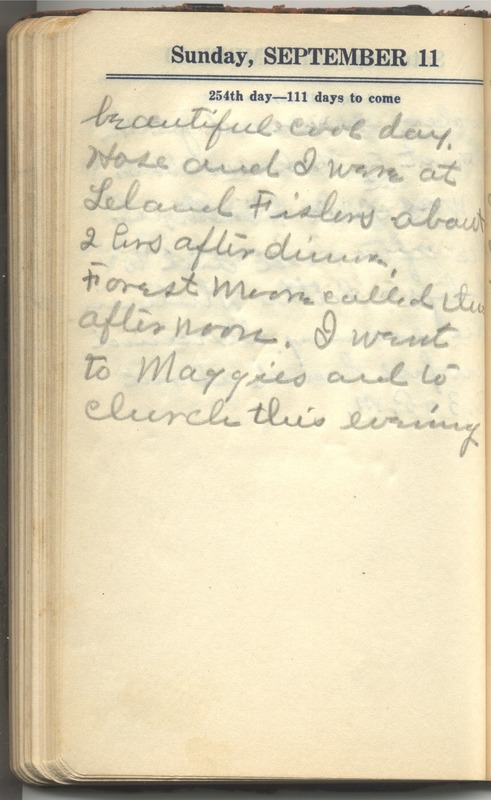 Sunday, SEPTEMBER 11
254th day—111 days to come
beautiful cool day.
Hose and I were at
Leland Fislers about
2 hrs after dinner,
Forest Moore called this
afternoon. I went
to Maggies and to
church this evening